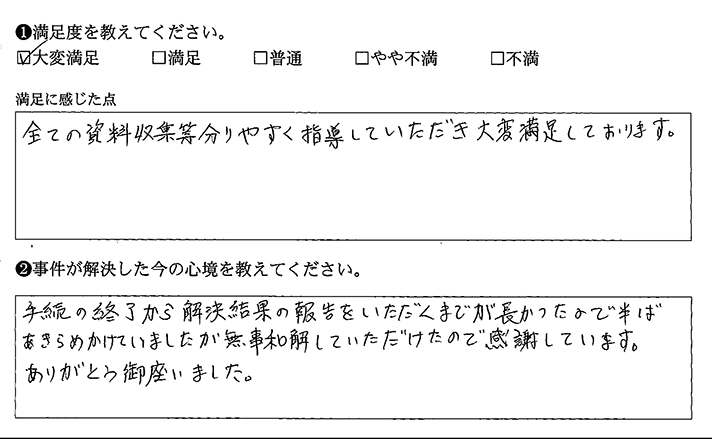 ❶満足度を教えてください。
☑大変満足 □満足 □普通 □やや不満 □不満
満足に感じた点
全ての資料収集等分りやすく指導していただき大変満足しております。
❷事件が解決した今の心境を教えてください。
手続の終了から解決結果の報告をいただくまでが長かったので半ば
あきらめかけていましたが無事和解していただけたので感謝しています。
ありがとう御座いました。